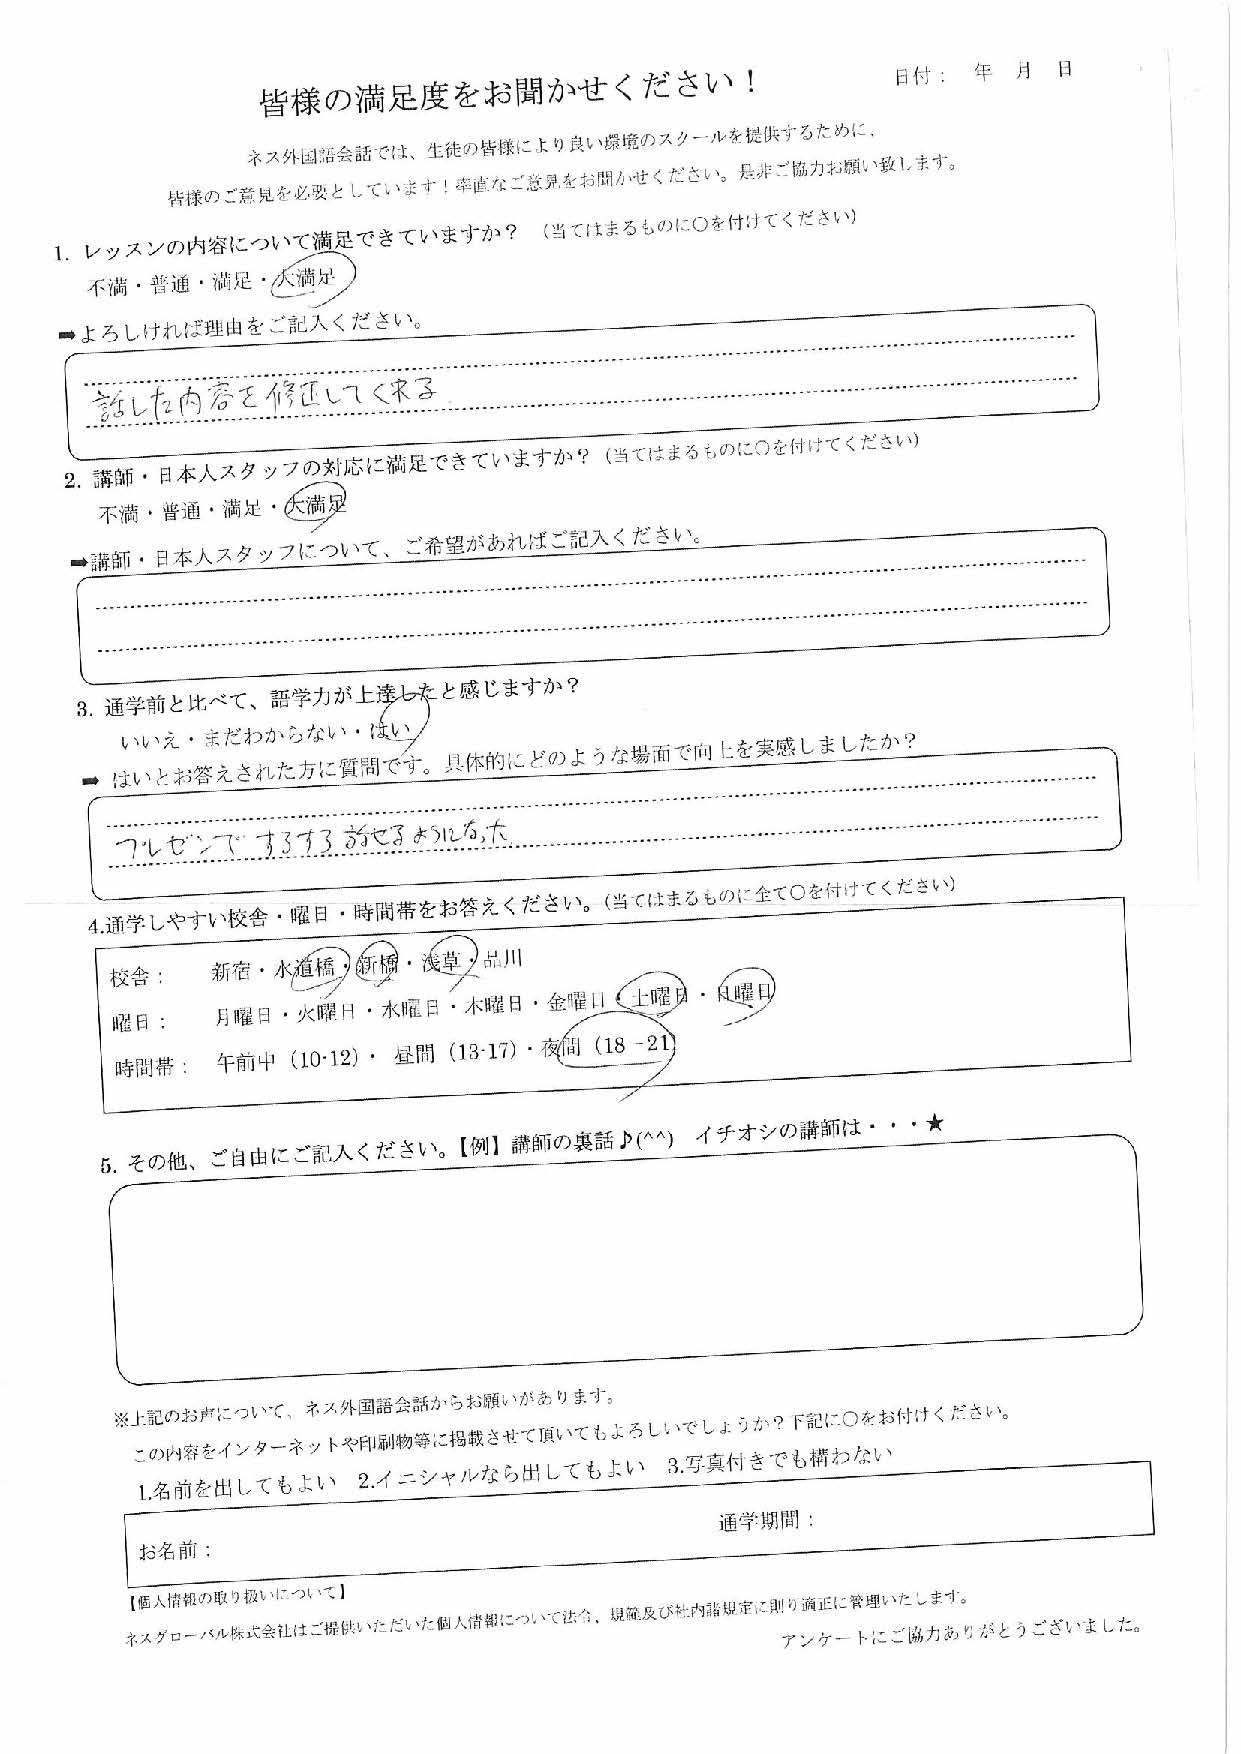 皆様の満足度をお聞かせください！
日付： 年 月 日
ネス外国語会話では、生徒の皆様により良い環境のスクールを提供するために、
皆様のご意見を必要としています！率直なご意見をお聞かせください。是非ご協力お願い致します。
1. レッスンの内容について満足できていますか？ （当てはまるものに〇を付けてください）
不満・普通・満足・大満足
➡よろしければ理由をご記入ください。
話した内容を修正してく来る
2. 講師・日本人スタッフの対応に満足できていますか？（当てはまるものに〇を付けてください）
不満・普通・満足・大満足
➡講師・日本人スタッフについて、ご希望があればご記入ください。
3. 通学前と比べて、語学力が上達したと感じますか？
いいえ・まだわからない・はい
➡ はいとお答えされた方に質問です。具体的にどのような場面で向上を実感しましたか？
プレゼンで するする 話せるようになった
4.通学しやすい校舎・曜日・時間帯をお答えください。（当てはまるものに全て〇を付けてください）
校舎： 新宿・水道橋・新橋・浅草・品川
曜日： 月曜日・火曜日・水曜日・木曜日・金曜日・土曜日・日曜日
時間帯： 午前中（10-12）・ 昼間（13-17）・夜間（18－21）
5. その他、ご自由にご記入ください。【例】講師の裏話♪(^^) イチオシの講師は・・・★
※上記のお声について、ネス外国語会話からお願いがあります。
この内容をインターネットや印刷物等に掲載させて頂いてもよろしいでしょうか？下記に〇をお付けください。
1.名前を出してもよい 2.イニシャルなら出してもよい 3.写真付きでも構わない
お名前： 通学期間：
【個人情報の取り扱いについて】
ネスグローバル株式会社はご提供いただいた個人情報について法令、規範及び社内諸規定に則り適正に管理いたします。
アンケートにご協力ありがとうございました。